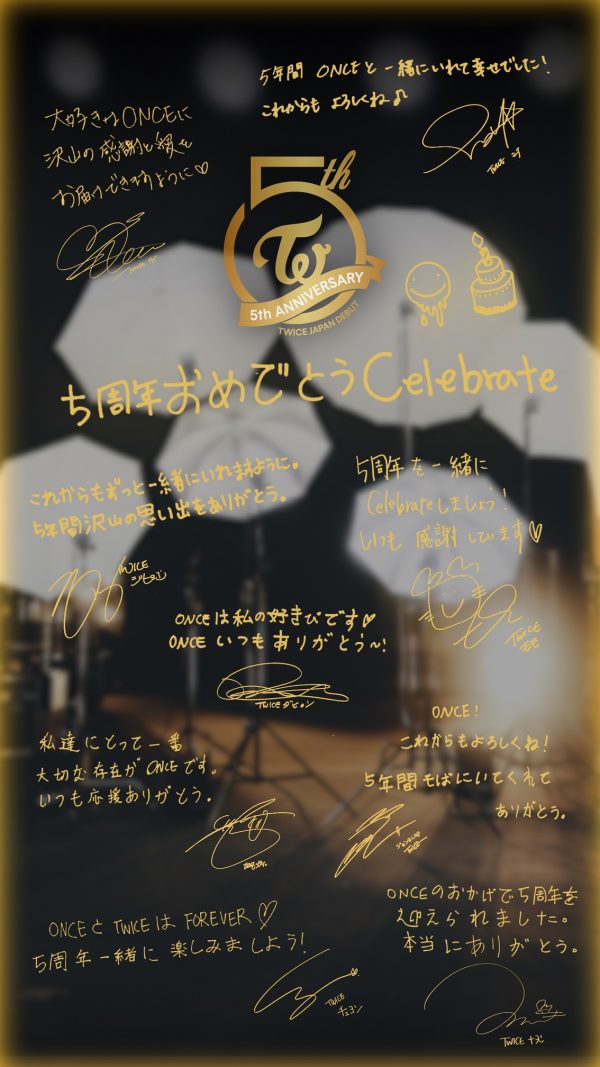 5年間 ONCEと一緒にいれて幸せでした!
これからも よろしくね♪
TWICE
大好きなONCEに
沢山の感謝と愛を
お届けできますように♡
5th
TW
5th ANNIVERSARY
TWICE JAPAN DEBUT
5周年おめでとうCelebrate
これからもずっと一緒にいれますように。
5年間沢山の思い出をありがとう。
TWICE
ジヒョ
5周年を一緒に
Celebrateしましょう!
いつも 感謝しています♡
TWICE
モモ
ONCEは私の好きぴです♡
ONCE いつも ありがとう〜!
TWICE ダヒョン
私達にとって一番
大切な存在が ONCEです。
いつも応援ありがとう。
ONCE!
これからもよろしくね!
5年間そばにいてくれて
ありがとう。
TWICE
ONCEと TWICEは FOREVER♡
5周年一緒に 楽しみましよう!
TWICE
チェヨン
ONCEのおかげで5周年を
迎えられました。
本当にありがとう。
TWICE ナヨン